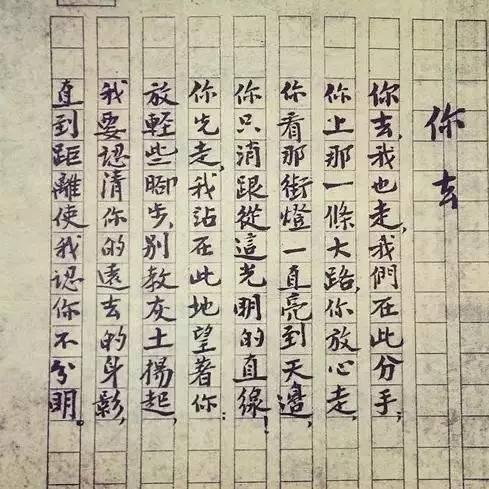 你去
你去，我也走，我們在此分手；
你上那一條大路，你放心走，
你看那街燈一直亮到天邊，
你只消跟從這光明的直線！
你先走，我站在此地望著你：
放輕些腳步，別教灰土揚起，
我要認清你的遠去的身影，
直到距離使我認你不分明。